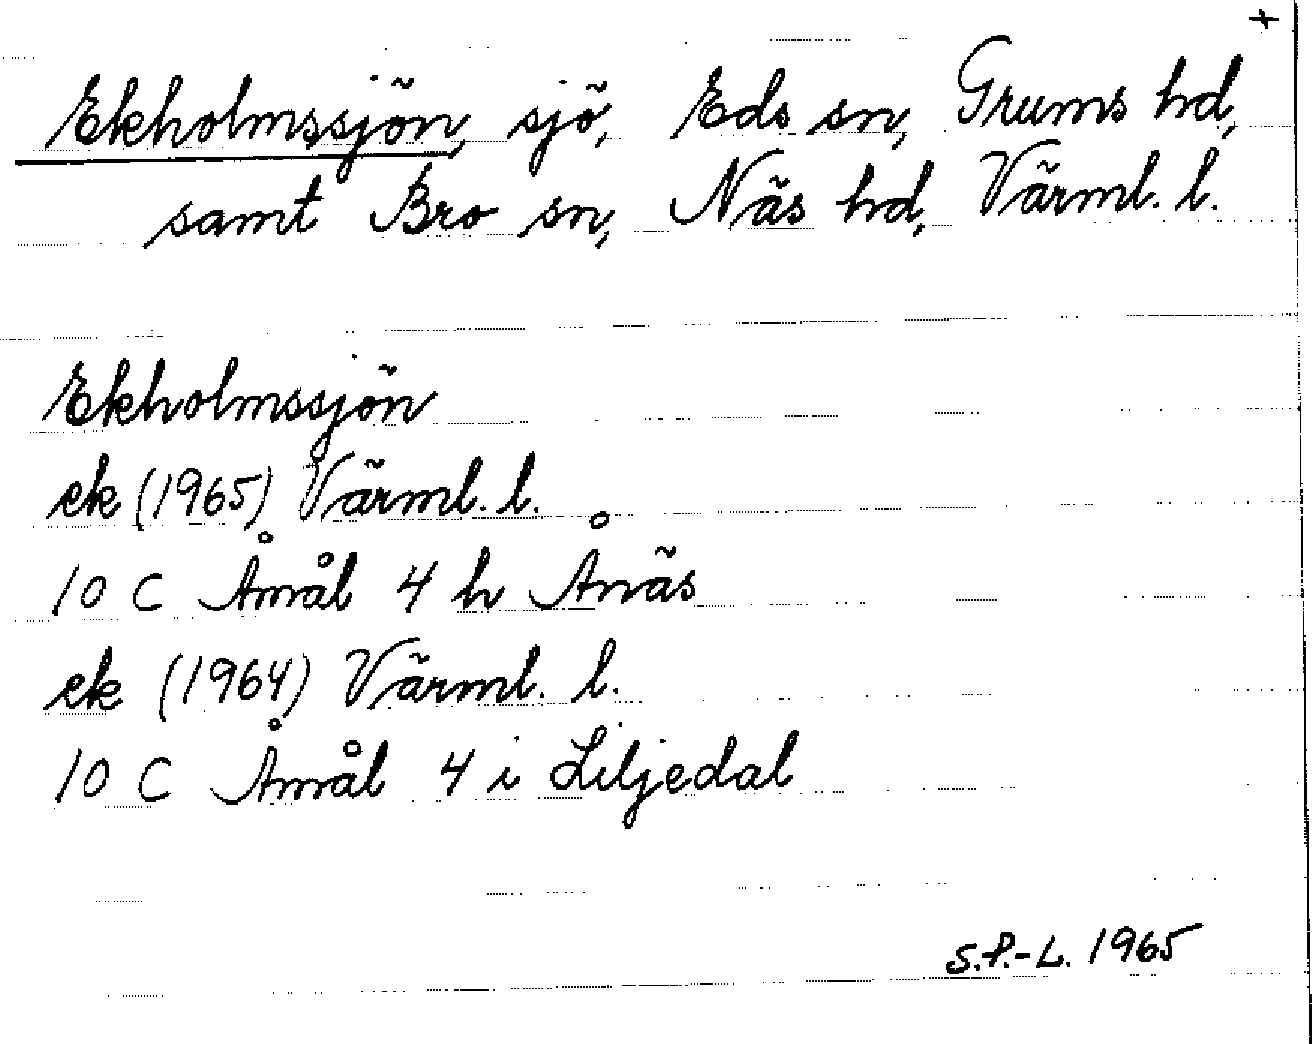 +
Ekholmssjön, sjö, Eds sn, Grums hd,
samt Bro sn, Näs hd, Värml. l.
Ekholmssjön
ek (1965) Värml. l.
10 C Åmål 4 h Ånäs
ek (1964) Värml. l.
10 C Åmål 4 i Liljedal
S.P.-L. 1965